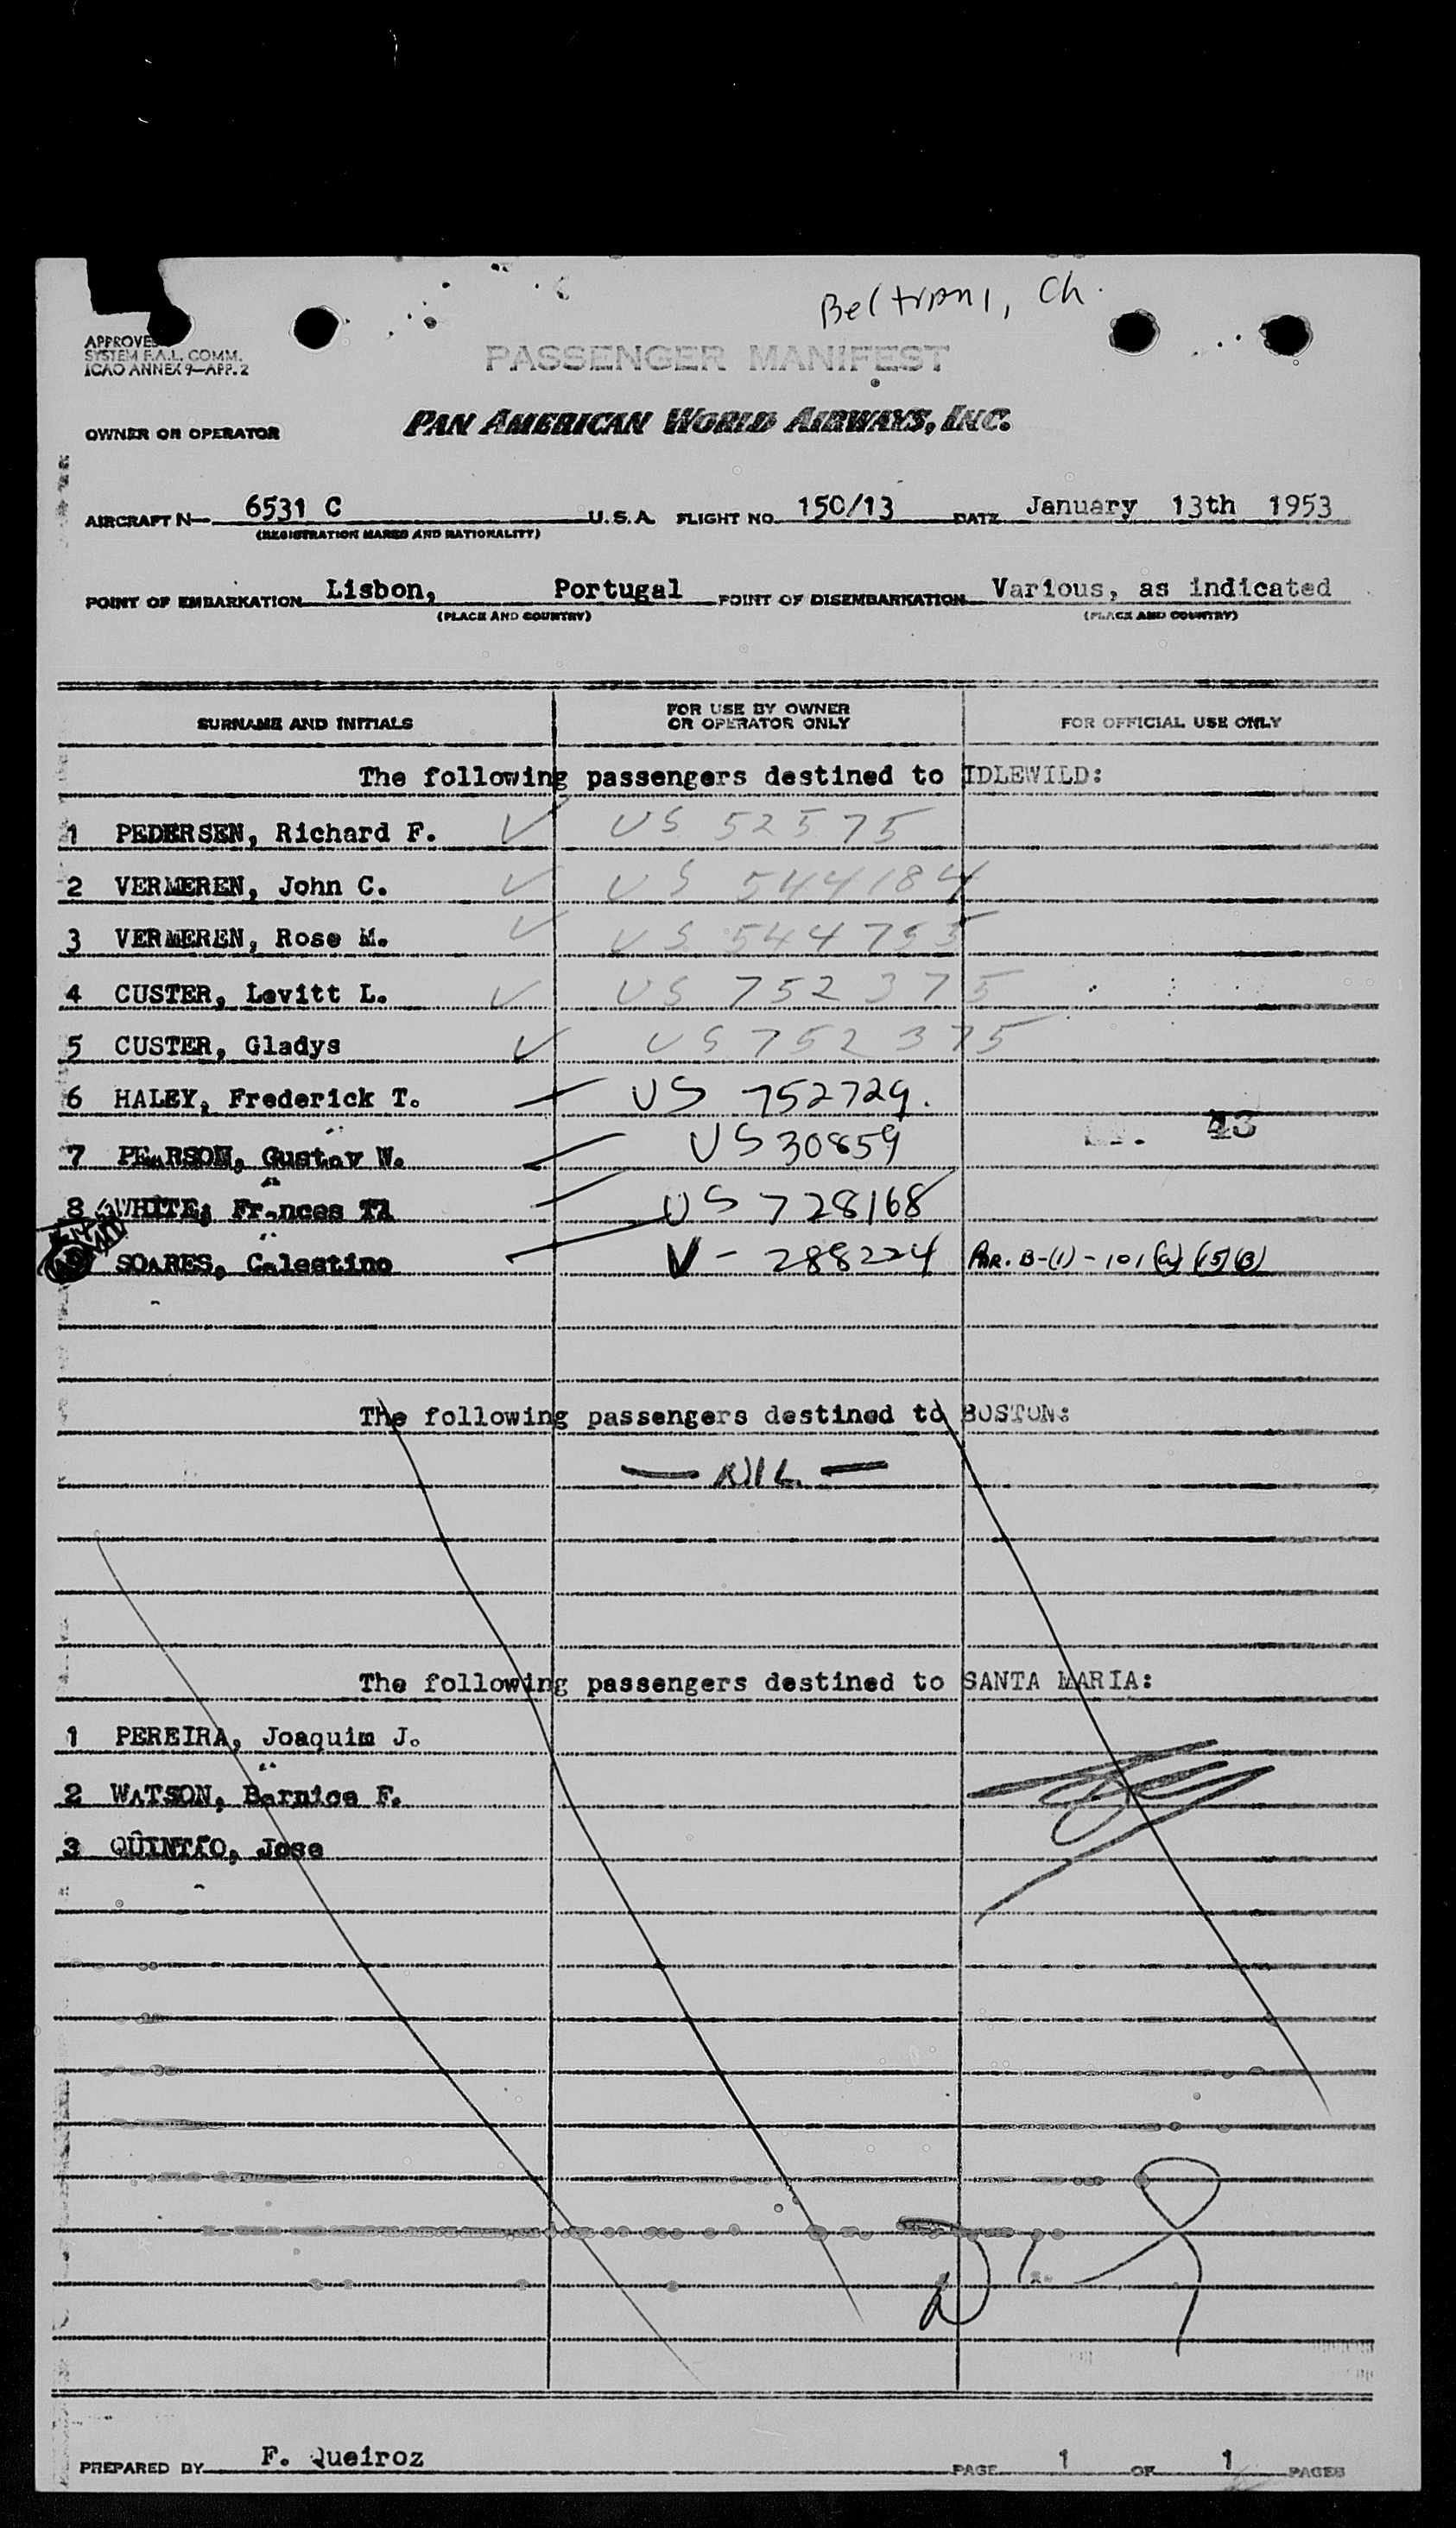 Beltrani, Ch.
APPROVED
SYSTEM F.A.L. COMM.
ICAO ANNEX 9—APP. 2
PASSENGER MANIFEST
OWNER OR OPERATOR PAN AMERICAN WORLD AIRWAYS, INC.
AIRCRAFT N— 6531 C U.S.A. FLIGHT NO. 150/13 DATE January 13th 1953
(REGISTRATION MARKS AND NATIONALITY)
POINT OF EMBARKATION Lisbon, Portugal POINT OF DISEMBARKATION Various, as indicated
(PLACE AND COUNTRY) (PLACE AND COUNTRY)
SURNAME AND INITIALS FOR USE BY OWNER OR OPERATOR ONLY FOR OFFICIAL USE ONLY
The following passengers destined to IDLEWILD:
1 PEDERSEN, Richard F. US 52575
2 VERMEREN, John C. US 544184
3 VERMEREN, Rose M. US 544755
4 CUSTER, Levitt L. US 752375
5 CUSTER, Gladys US 752375
6 HALEY, Frederick T. US 752729.
43
7 PEARSON, Gustav W. US 30859
8 WHITE, Frances US 728168
SOARES, Celestino V - 288224 PAR. B-(1) - 101 (a) (15) (B)
The following passengers destined to BOSTON:
— NIL —
The following passengers destined to SANTA MARIA:
1 PEREIRA, Joaquim J.
2 WATSON, Bernice F.
3 QUINTÃO, Jose
PREPARED BY F. Queiroz PAGE 1 OF 1 PAGES